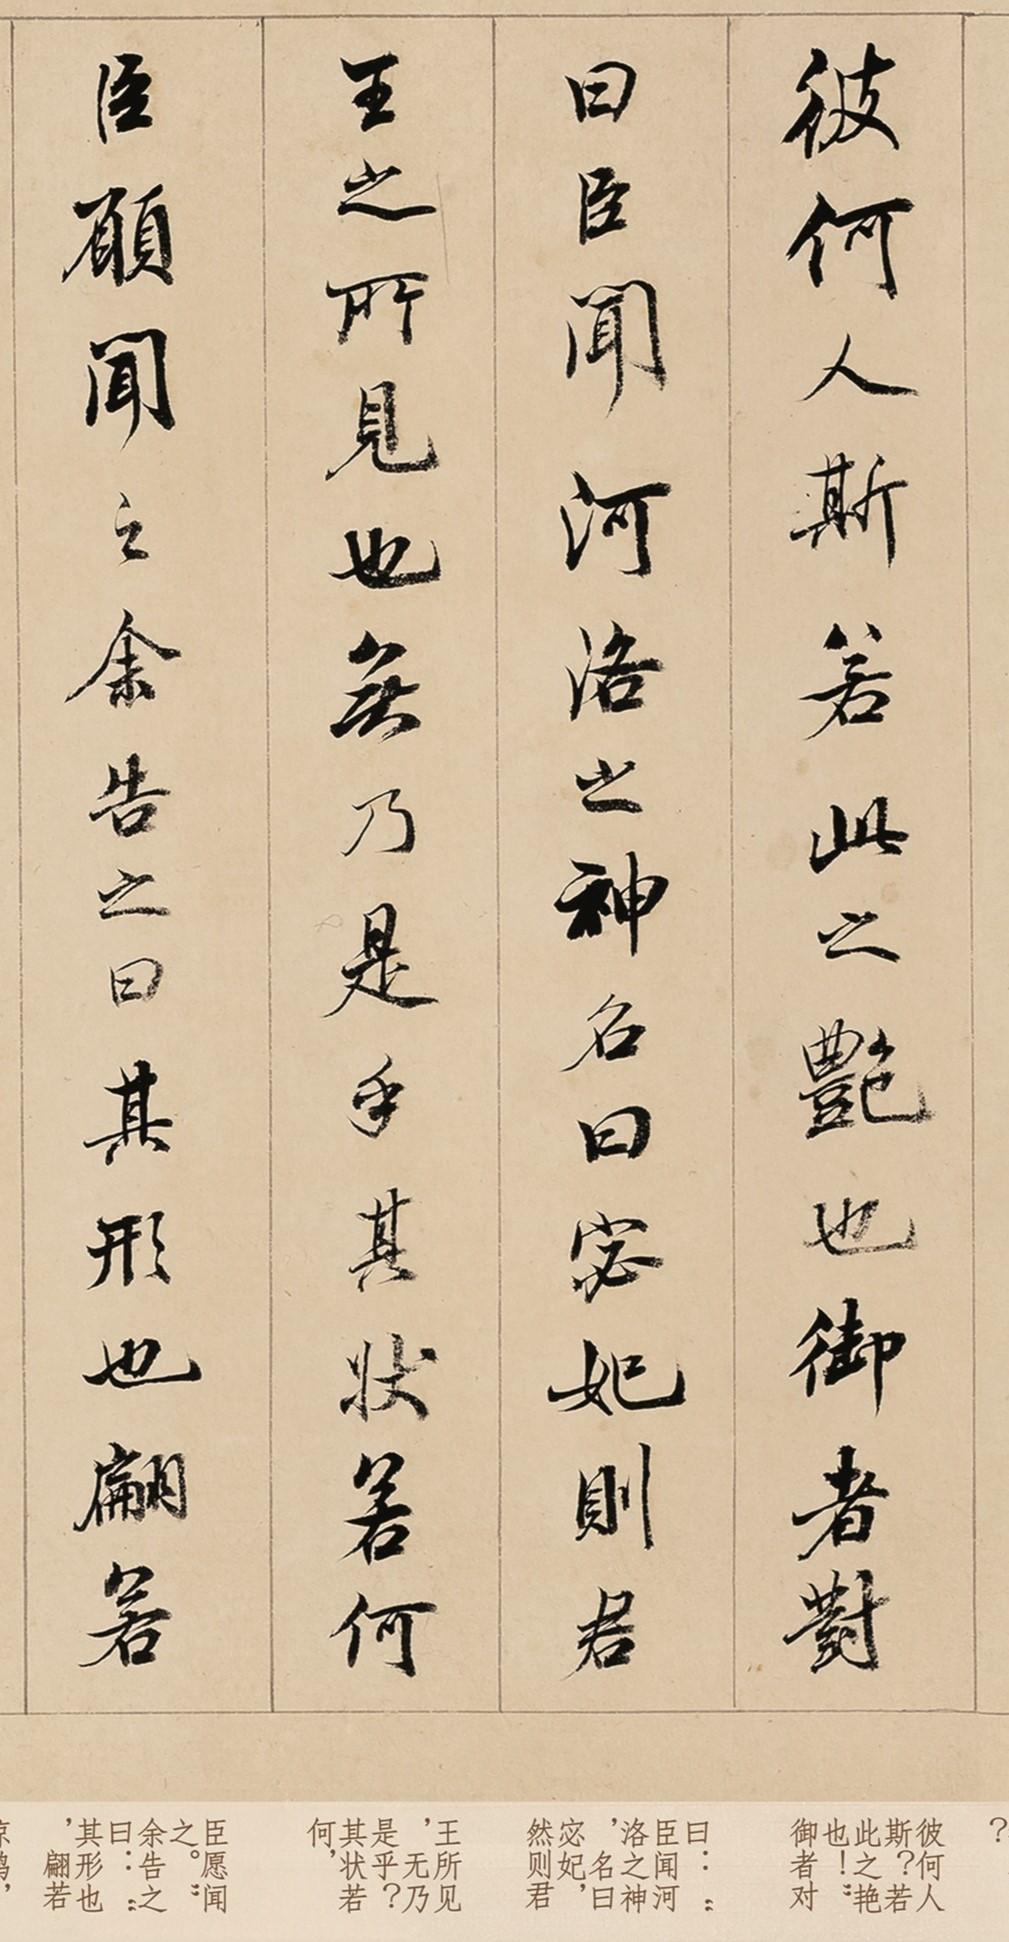 彼何人斯若此之艷也御者對
曰臣聞河洛之神名曰宓妃則君
王之所見也無乃是乎其狀若何
臣願聞之余告之曰其形也翩若
？
彼何人
斯？若
此之艳
也！”
御者对
曰：“
臣闻河
洛之神
，名曰
宓妃，
然则君
王所见
，无乃
是乎？
其状若
何，
臣愿闻
之。”
余告之
曰：“
其形也
，翩若